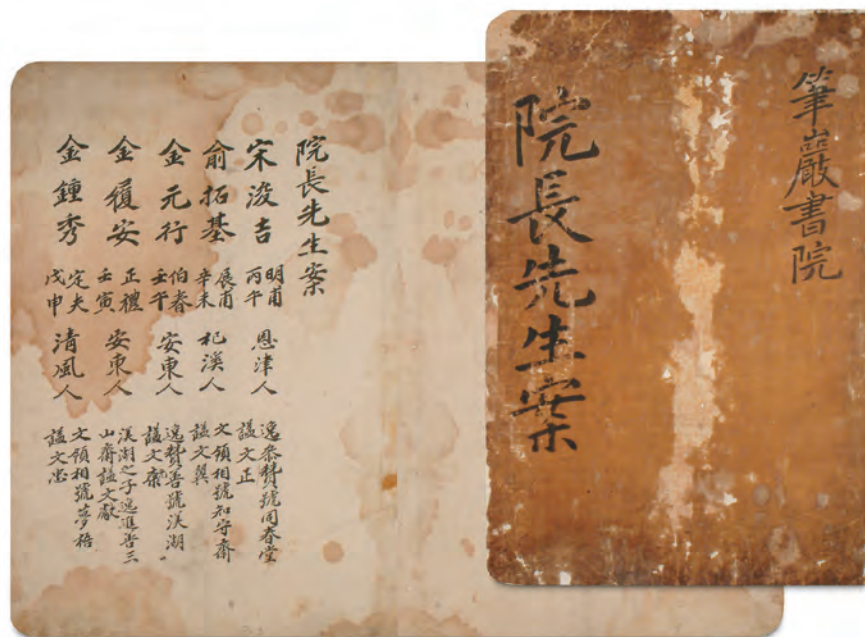 筆巖書院
院長先生案
院長先生案
宋浚吉 明甫 丙午 恩津人 逸叅贊號同春堂 諡文正
俞拓基 展甫 辛未 杞溪人 文領相號知守齋 諡文翼
金元行 伯春 壬午 安東人 逸贊善號渼湖 諡文
金履安 正禮 壬寅 安東人 渼湖之子逸進善三 山齋諡文獻
金鍾秀 定夫 戊申 清風人 文領相號夢梧 諡文忠